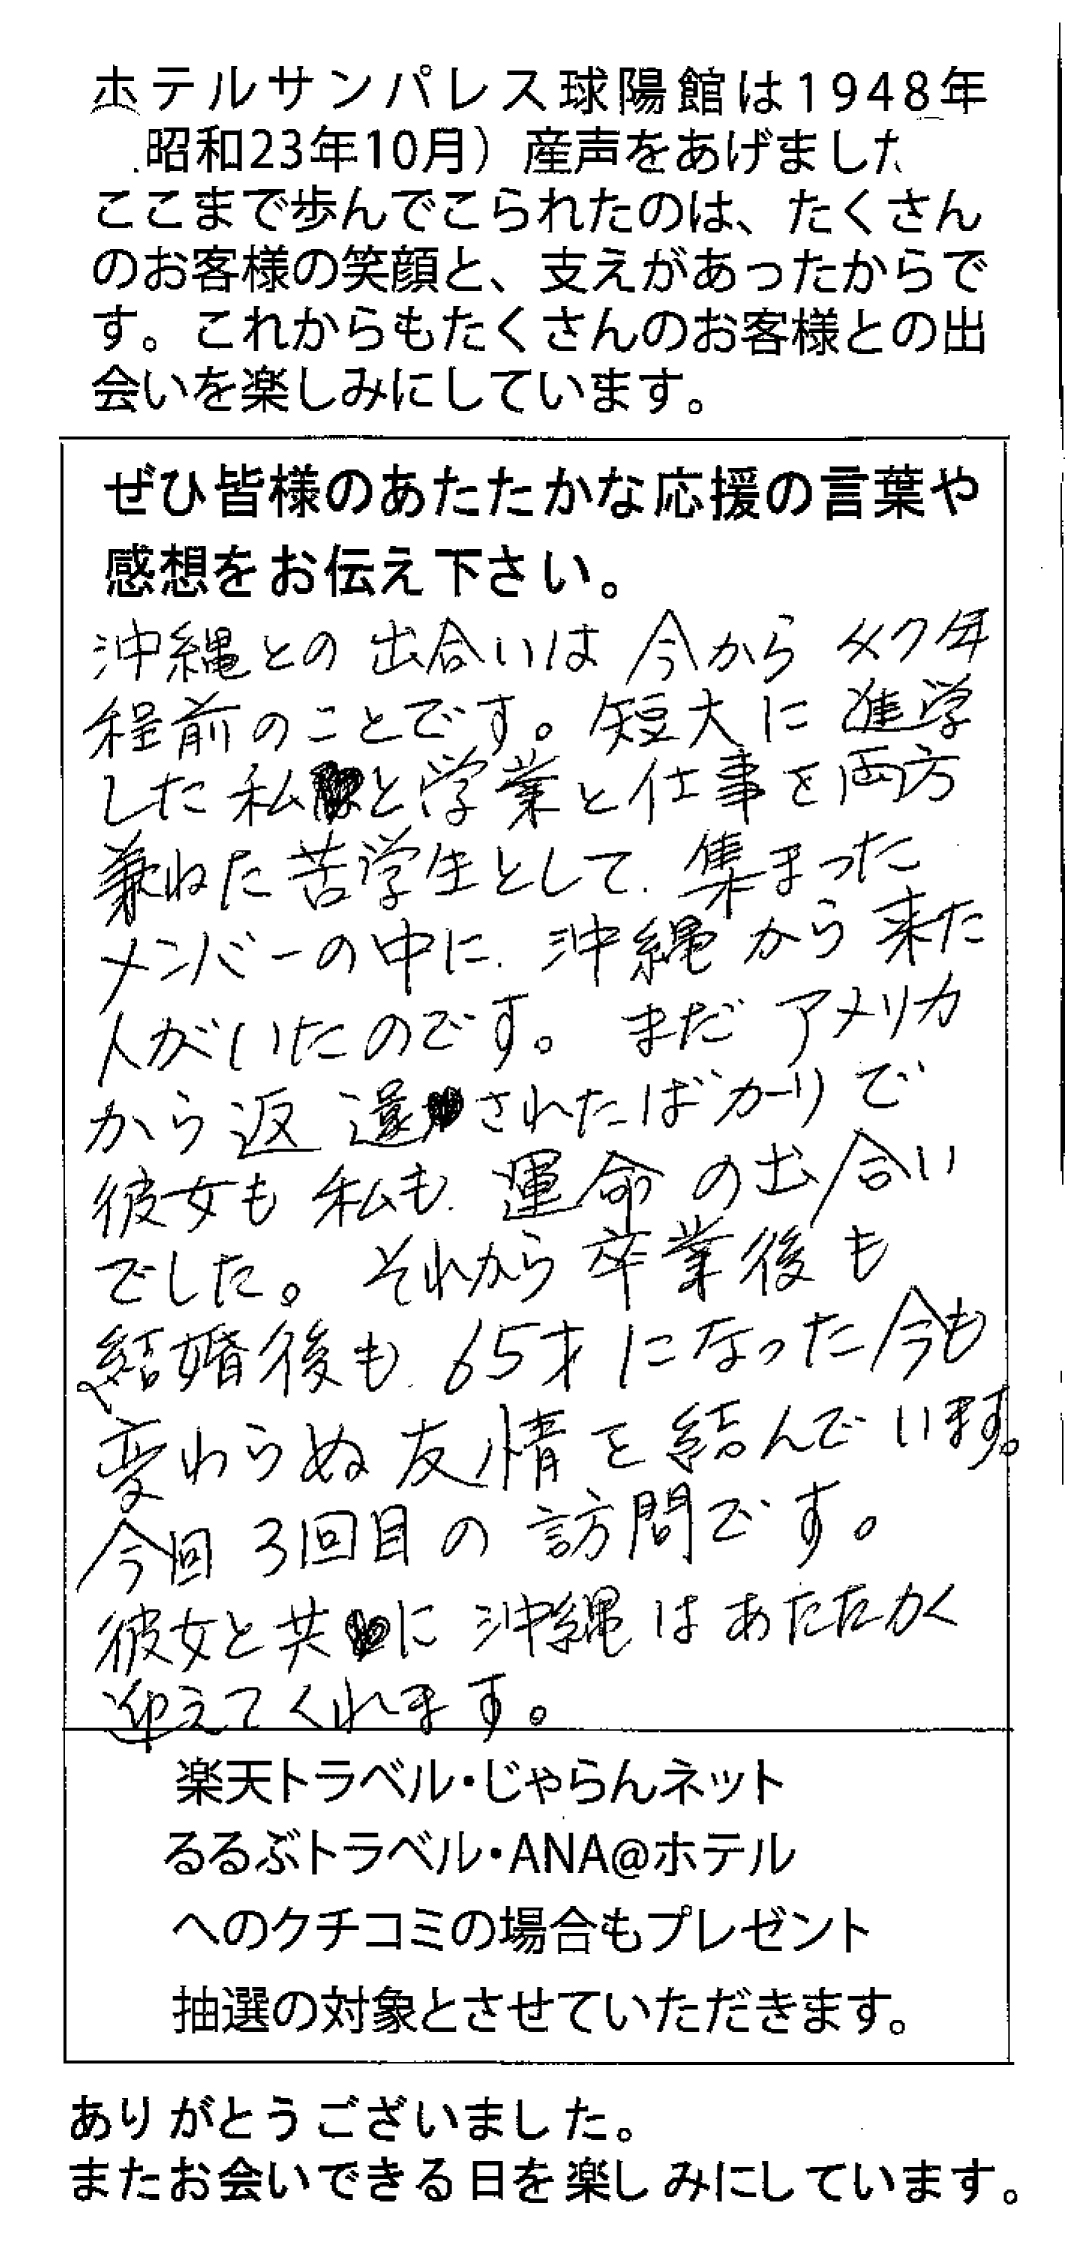 ホテルサンパレス球陽館は1948年
(昭和23年10月）産声をあげました
ここまで歩んでこられたのは、たくさん
のお客様の笑顔と、支えがあったからで
す。これからもたくさんのお客様との出
会いを楽しみにしています。
ぜひ皆様のあたたかな応援の言葉や
感想をお伝え下さい。
沖縄との出合いは今から47年
程前のことです。短大に進学
した私と学業と仕事を両方
兼ねた苦学生として、集まった
メンバーの中に、沖縄から来た
人がいたのです。まだアメリカ
から返還されたばかりで
彼女も私も、運命の出合い
でした。それから卒業後も
結婚後も、65才になった今も
変わらぬ友情を結んでいます。
今回3回目の訪問です。
彼女と共に沖縄はあたたかく
迎えてくれます。
楽天トラベル・じゃらんネット
るるぶトラベル・ANA@ホテル
へのクチコミの場合もプレゼント
抽選の対象とさせていただきます。
ありがとうございました。
またお会いできる日を楽しみにしています。